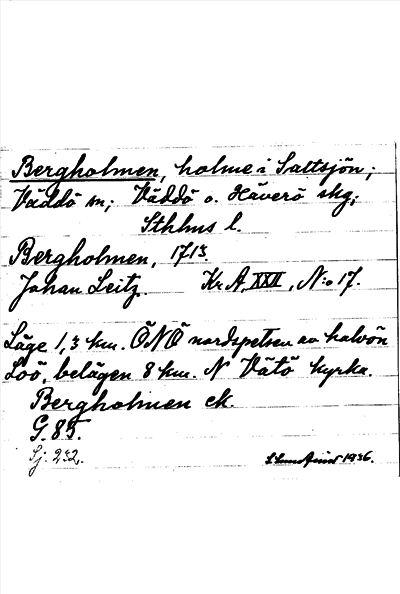 Bergholmen, holme i Saltsjön;
Väddö sn; Väddö o. Häverö skg;
Sthlms l.
Bergholmen, 1713.
Johan Leitz. Kr. A, XXII, N:o 17.
Läge 1,3 km. ÖNÖ nordspetsen av halvön
Löö, belägen 8 km. N Vätö kyrka.
Bergholmen ek.
G. 85.
Sj. 232.
1936.